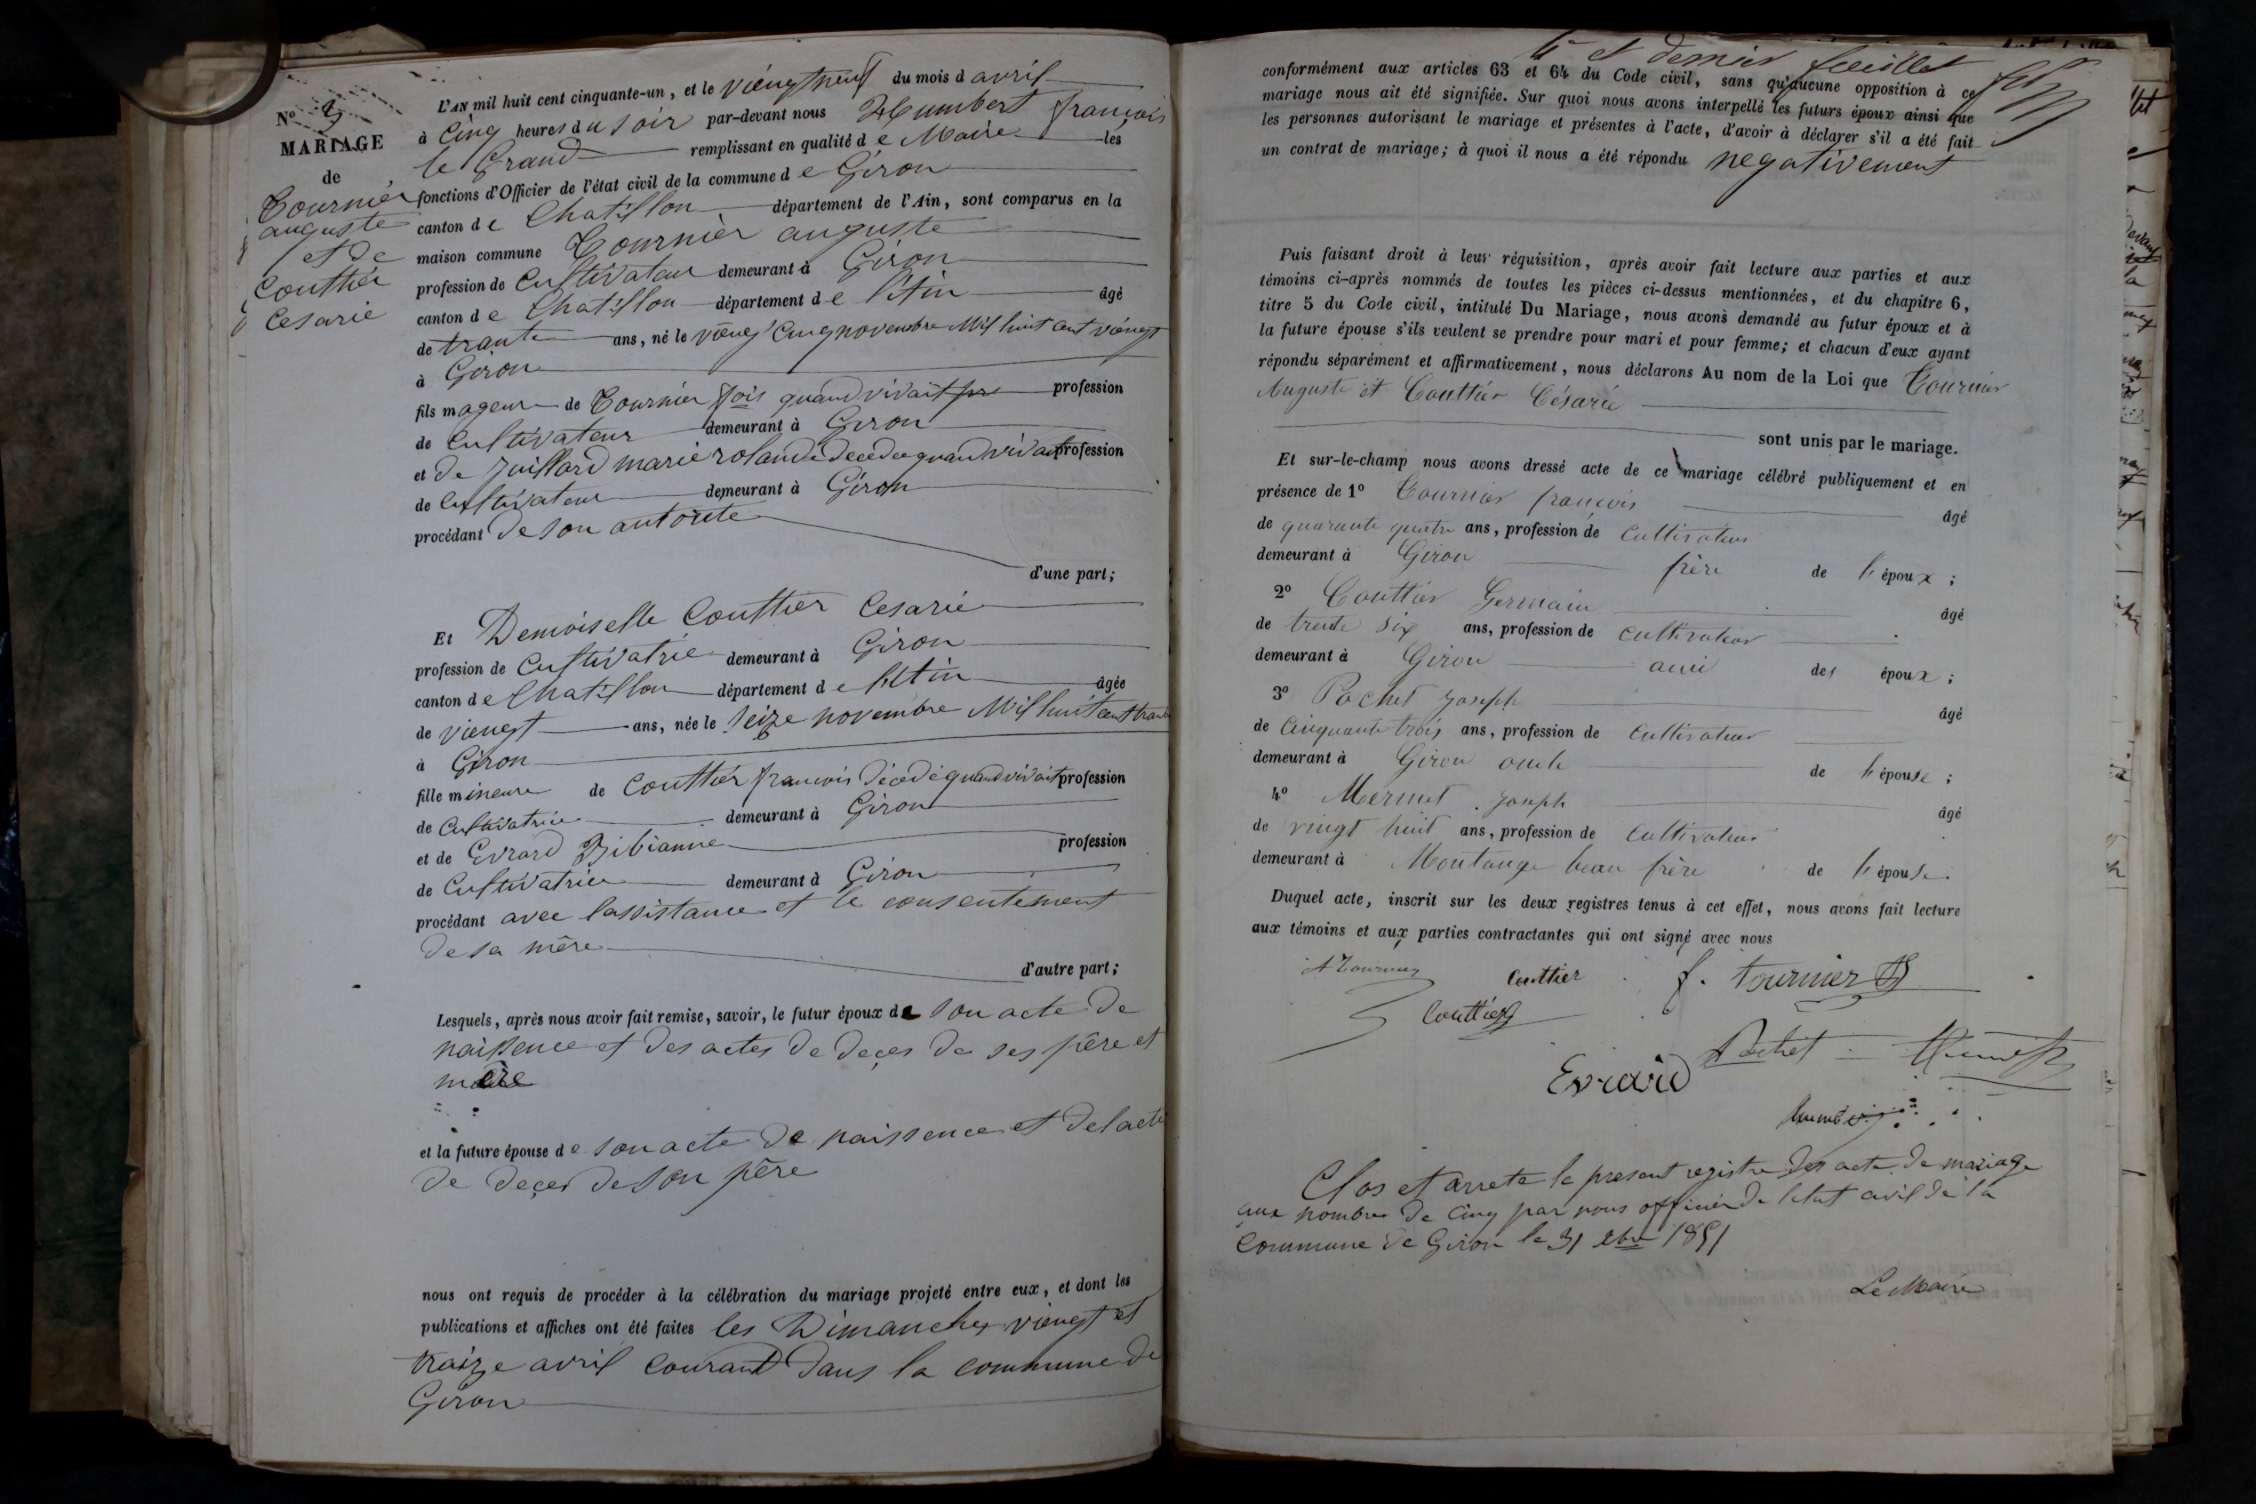 N°
MARIAGE
de
Tournier
auguste
et de
Couttier
Cesarie
L'AN mil huit cent cinquante-un, et le viengtneuf du mois d avril
à Cinq heures du soir par-devant nous Humbert françois
le Grand remplissant en qualité de Maire les
fonctions d'Officier de l'état civil de la commune de Giron
canton de Chatillon département de l'Ain, sont comparus en la
maison commune Tournier auguste
profession de Cultivateur demeurant à Giron
canton de Chatillon département de l'Ain âgé
de trante ans, né le vieng Cinq novembre Mil huit cent viengt
à Giron
fils mageur de Tournier fois quand vivait profession
de Cultivateur demeurant à Giron
et de Juillard marie rolande decedee quand vivait profession
de Cultivateur demeurant à Giron
procédant de son autorite
d'une part;
Et Demoiselle Couttier Cesarie
profession de Cultivatrie demeurant à Giron
canton de Chatillon département de l'Ain âgée
de viengt ans, née le seize novembre Mil huit cent trante
à Giron
fille mineure de Couttier françois décédé quand vivait profession
de Cultivatrice demeurant à Giron
et de Evrard Bibianne profession
de Cultivatrice demeurant à Giron
procédant avec lassistance et le consentement
de sa mère
d'autre part;
Lesquels, après nous avoir fait remise, savoir, le futur époux de son acte de
naissence et des actes de deçes de ses père et
mère
et la future épouse de son acte de naissence et de lacte
de deçes de son père
nous ont requis de procéder à la célébration du mariage projeté entre eux, et dont les
publications et affiches ont été faites les Dimanches viengt et
traize avril courand dans la commune de
Giron
4e et dernier feuillet
conformément aux articles 63 et 64 du Code civil, sans qu'aucune opposition à ce
mariage nous ait été signifiée. Sur quoi nous avons interpellé les futurs époux ainsi que
les personnes autorisant le mariage et présentes à l'acte, d'avoir à déclarer s'il a été fait
un contrat de mariage; à quoi il nous a été répondu negativement
Puis faisant droit à leur réquisition, après avoir fait lecture aux parties et aux
témoins ci-après nommés de toutes les pièces ci-dessus mentionnées, et du chapitre 6,
titre 5 du Code civil, intitulé Du Mariage, nous avons demandé au futur époux et à
la future épouse s'ils veulent se prendre pour mari et pour femme; et chacun d'eux ayant
répondu séparément et affirmativement, nous déclarons Au nom de la Loi que Tournier
Auguste et Couttier Césarie
sont unis par le mariage.
Et sur-le-champ nous avons dressé acte de ce mariage célébré publiquement et en
présence de 1° Tournier françois âgé
de quarante quatre ans, profession de Cultivateur
demeurant à Giron frère de l'époux;
2° Couttier Germain âgé
de trente six ans, profession de cultivateur
demeurant à Giron ami des époux;
3° Pochet Joseph âgé
de Cinquante trois ans, profession de Cultivateur
demeurant à Giron oncle de l'épouse;
4° Mermet Joseph âgé
de vingt huit ans, profession de Cultivateur
demeurant à Montange beau frère de l'épouse.
Duquel acte, inscrit sur les deux registres tenus à cet effet, nous avons fait lecture
aux témoins et aux parties contractantes qui ont signé avec nous
A Tournier Couttier f. tournier
Couttier
Pochet
Evrard
Clos et arrete le present registre des acte de mariage
aux nombre de Cinq par nous officier de letat civil de la
Commune de Giron le 31 xbre 1851
Le Maire